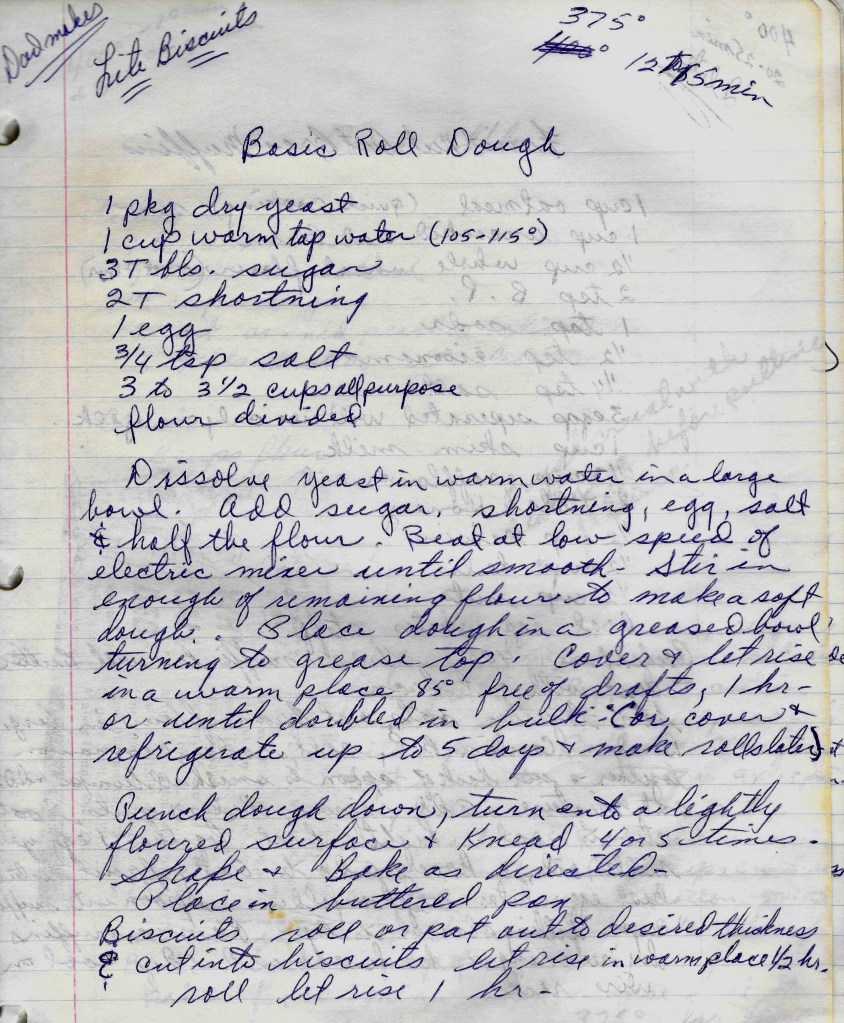 Dad makes
Lite Biscuits
375°
400°
12 to 15 min
Basic Roll Dough
1 pkg dry yeast
1 cup warm tap water (105-115°)
3 T bls. sugar
2 T shortning
1 egg
3/4 tsp salt
3 to 3 1/2 cups all purpose
flour divided
Dissolve yeast in warm water in a large
bowl. Add sugar, shortning, egg, salt
& half the flour. Beat at low speed of
electric mixer until smooth - Stir in
enough of remaining flour to make a soft
dough.. Place dough in a greased bowl,
turning to grease top. Cover & let rise
in a warm place 85° free of drafts, 1 hr -
or until doubled in bulk - (or cover &
refrigerate up to 5 days & make rolls later)
Punch dough down, turn onto a lightly
floured surface & Knead 4 or 5 times.
Shape & Bake as directed -
Place in buttered pan
Biscuits roll or pat out to desired thickness
& cut into biscuits let rise in warm place 1/2 hr.
roll let rise 1 hr -